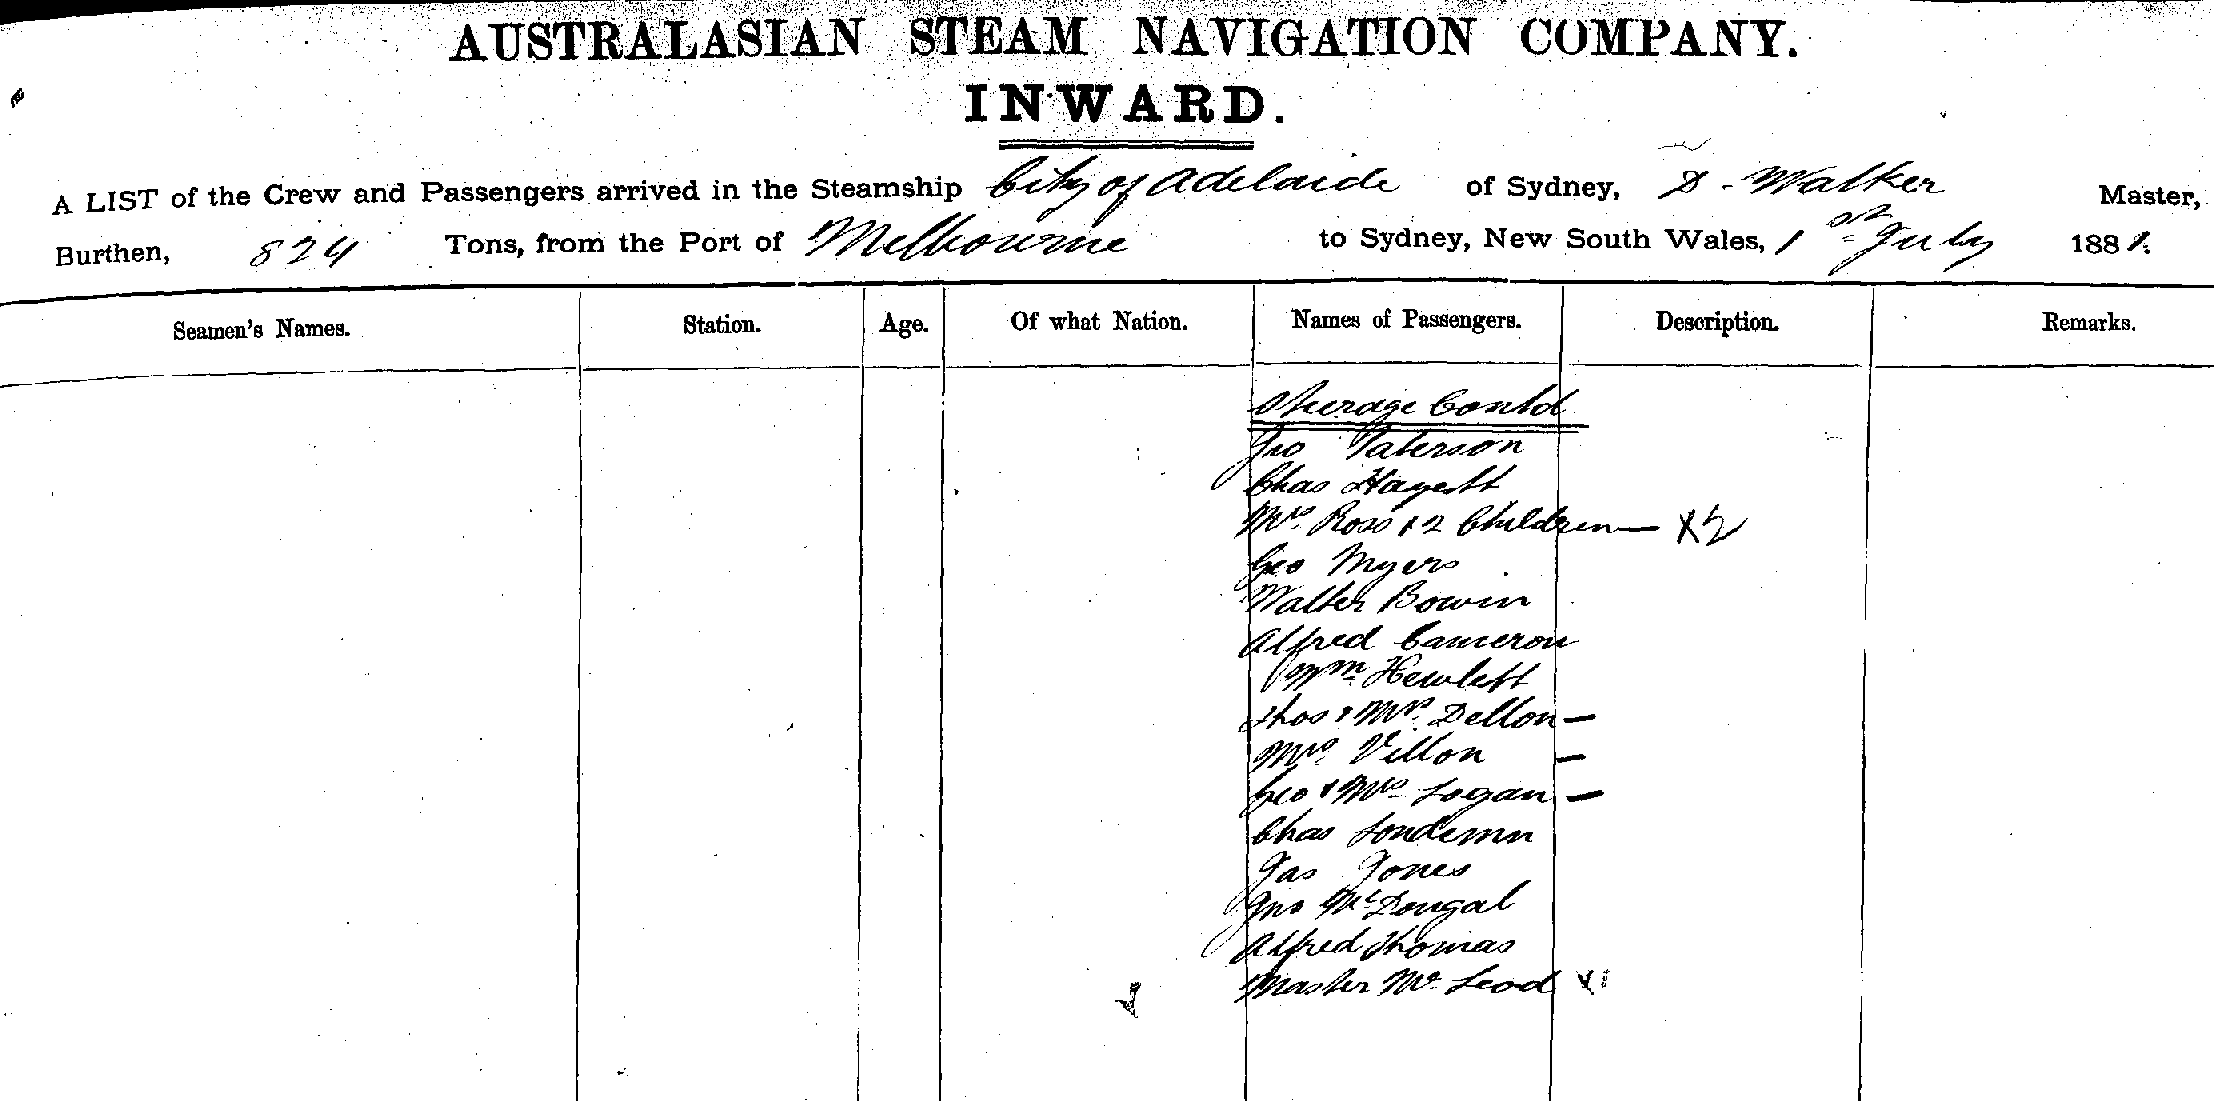 AUSTRALASIAN STEAM NAVIGATION COMPANY.
INWARD.
A LIST of the Crew and Passengers arrived in the Steamship City of Adelaide of Sydney, D. Walker Master,
Burthen, 824 Tons, from the Port of Melbourne to Sydney, New South Wales, 1st July 1881.
Seamen's Names. Station. Age. Of what Nation. Names of Passengers. Description. Remarks.
Steerage Contd
Geo Paterson
Chas
Mrs. Ross & 2 Children — X2
Geo Myers
Walter Bowin
Alfred Cameron
Wm Hewlett
Thos & Mrs. Dellon —
Mrs. Villon —
Geo & Mrs Logan —
Chas
Jas Jones
Jno McDougal
Alfred Thomas
Master McLeod X1